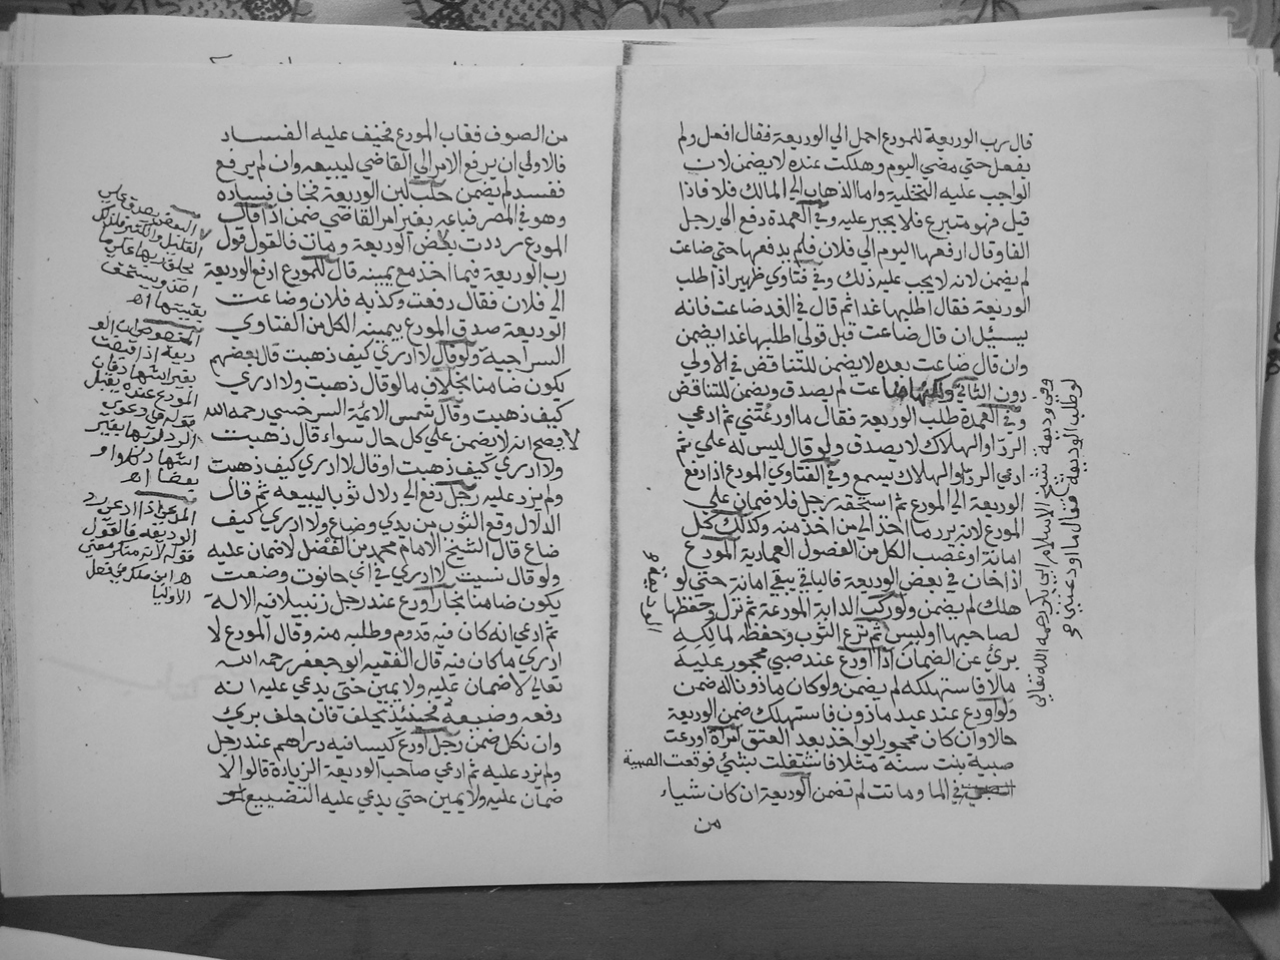 قال رب الوديعة للمودع احمل الي الوديعة فقال افعل ولم
يفعل حتي مضي اليوم وهلكت عنده لا يضمن لان
الواجب عليه التخلية واما الذهاب الي المالك فلا فاذا
قبل فهو متبرع فلا يجبر عليه وفي العمدة دفع الي رجل
الفا وقال ارفعها اليوم الي فلان فلم يدفعها حتي ضاعت
لم يضمن لانه لا يجب عليه ذلك وفي فتاوي ظهير اذا طلب
الوديعة فقال اطلبها غدا ثم قال في الغد ضاعت فانه
يسئل ان قال ضاعت قبل قولي اطلبها غدا يضمن
وان قال ضاعت بعده لا يضمن للتناقض في الاولي
دون الثاني ضاعت لم يصدق ويضمن للتناقض
وفي العمدة طلب الوديعة فقال ما اودعتني ثم ادعي
الرد او الهلاك لا يصدق ولو قال ليس له علي ثم
ادعي الرد او الهلاك يسمع وفي الفتاوي المودع اذا دفع
الوديعة الي المودع ثم استحقه رجل فلا ضمان علي
المودع لانه برد ما اخذ الي من اخذ منه وكذلك كل
امانة او غصب الكل من الفصول العمادية المودع
اذا خان في بعض الوديعة فالباقي يبقي امانة حتي لو
هلك لم يضمن ولو ركب الدابة المودعة ثم نزل وحفظها
لصاحبها او لبس ثم نزع الثوب وحفظه لمالكه
برئ عن الضمان اذا اودع عند صبي محجور عليه
مالا فاستهلكه لم يضمن ولو كان ماذونا له ضمن
ولو اودع عند عبد ماذون فاستهلك ضمن الوديعة
حالا وان كان محجورا يواخذ بعد العتق امراة اودعت
صبية بنت سنة مثلا فاشتغلت بشئ فوقعت الصبية
في الما وماتت لم تضمن الوديعة ان كان شياء
من
وفي وديعة شيخ الاسلام ابي بكر رحمه الله تعالي
لو طلب الوديعة فقال ما اودعتني
الوديعة
من الصوف فغاب المودع فخيف عليه الفساد
فالاولي ان يرفع الامر الي القاضي ليبيعه وان لم يرفع
ففسد لم يضمن حلب لبن الوديعة فخاف فساده
وهو في المصر فباعه بغير امر القاضي ضمن اذا قال
المودع رددت بعض الوديعة ومات فالقول قول
رب الوديعة فيما اخذ مع يمينه قال للمودع ارفع الوديعة
الي فلان فقال دفعت وكذبه فلان وضاعت
الوديعة صدق المودع بيمينه الكل من الفتاوي
السراجية ولو قال لا ادري كيف ذهبت قال بعضهم
يكون ضامنا بخلاف ما لو قال ذهبت ولا ادري
كيف ذهبت وقال شمس الائمة السرخسي رحمه الله
الاصح انه لا يضمن علي كل حال سواء قال ذهبت
ولا ادري كيف ذهبت او قال لا ادري كيف ذهبت
ولم يزد عليه رجل دفع الي دلال ثوبا ليبيعه ثم قال
الدلال وقع الثوب من يدي وضاع ولا ادري كيف
ضاع قال الشيخ الامام محمد بن الفضل لا ضمان عليه
ولو قال نسيت لا ادري في اي حانوت وضعت
يكون ضامنا نجار اودع عند رجل زنبيلا فيه الالة
ثم ادعي انه كان فيه قدوم وطلبه منه وقال المودع لا
ادري ما كان فيه قال الفقيه ابو جعفر رحمه الله
تعالي لا ضمان عليه ولا يمين حتي يدعي عليه انه
دفعه وضيعه فحينئذ يحلف فان حلف برئ
وان نكل ضمن رجل اودع كيسا فيه دراهم عند رجل
ولم يزد عليه ثم ادعي صاحب الوديعة الزيادة قالوا لا
ضمان عليه ولا يمين حتي يدعي عليه التضييع
البعض يصدق علي
القليل والكثير فلذلك
يحلف ربها علي ما
اخذ ويستحق
بقيتها اه
الو
ديعة اذا
بغير اذنها
المودع عنده يقبل
قوله في دعوي
الرد
المدعي اذا ادعي رد
الوديعة فالقول
قوله لانه منكر معني
اه ابن ملك